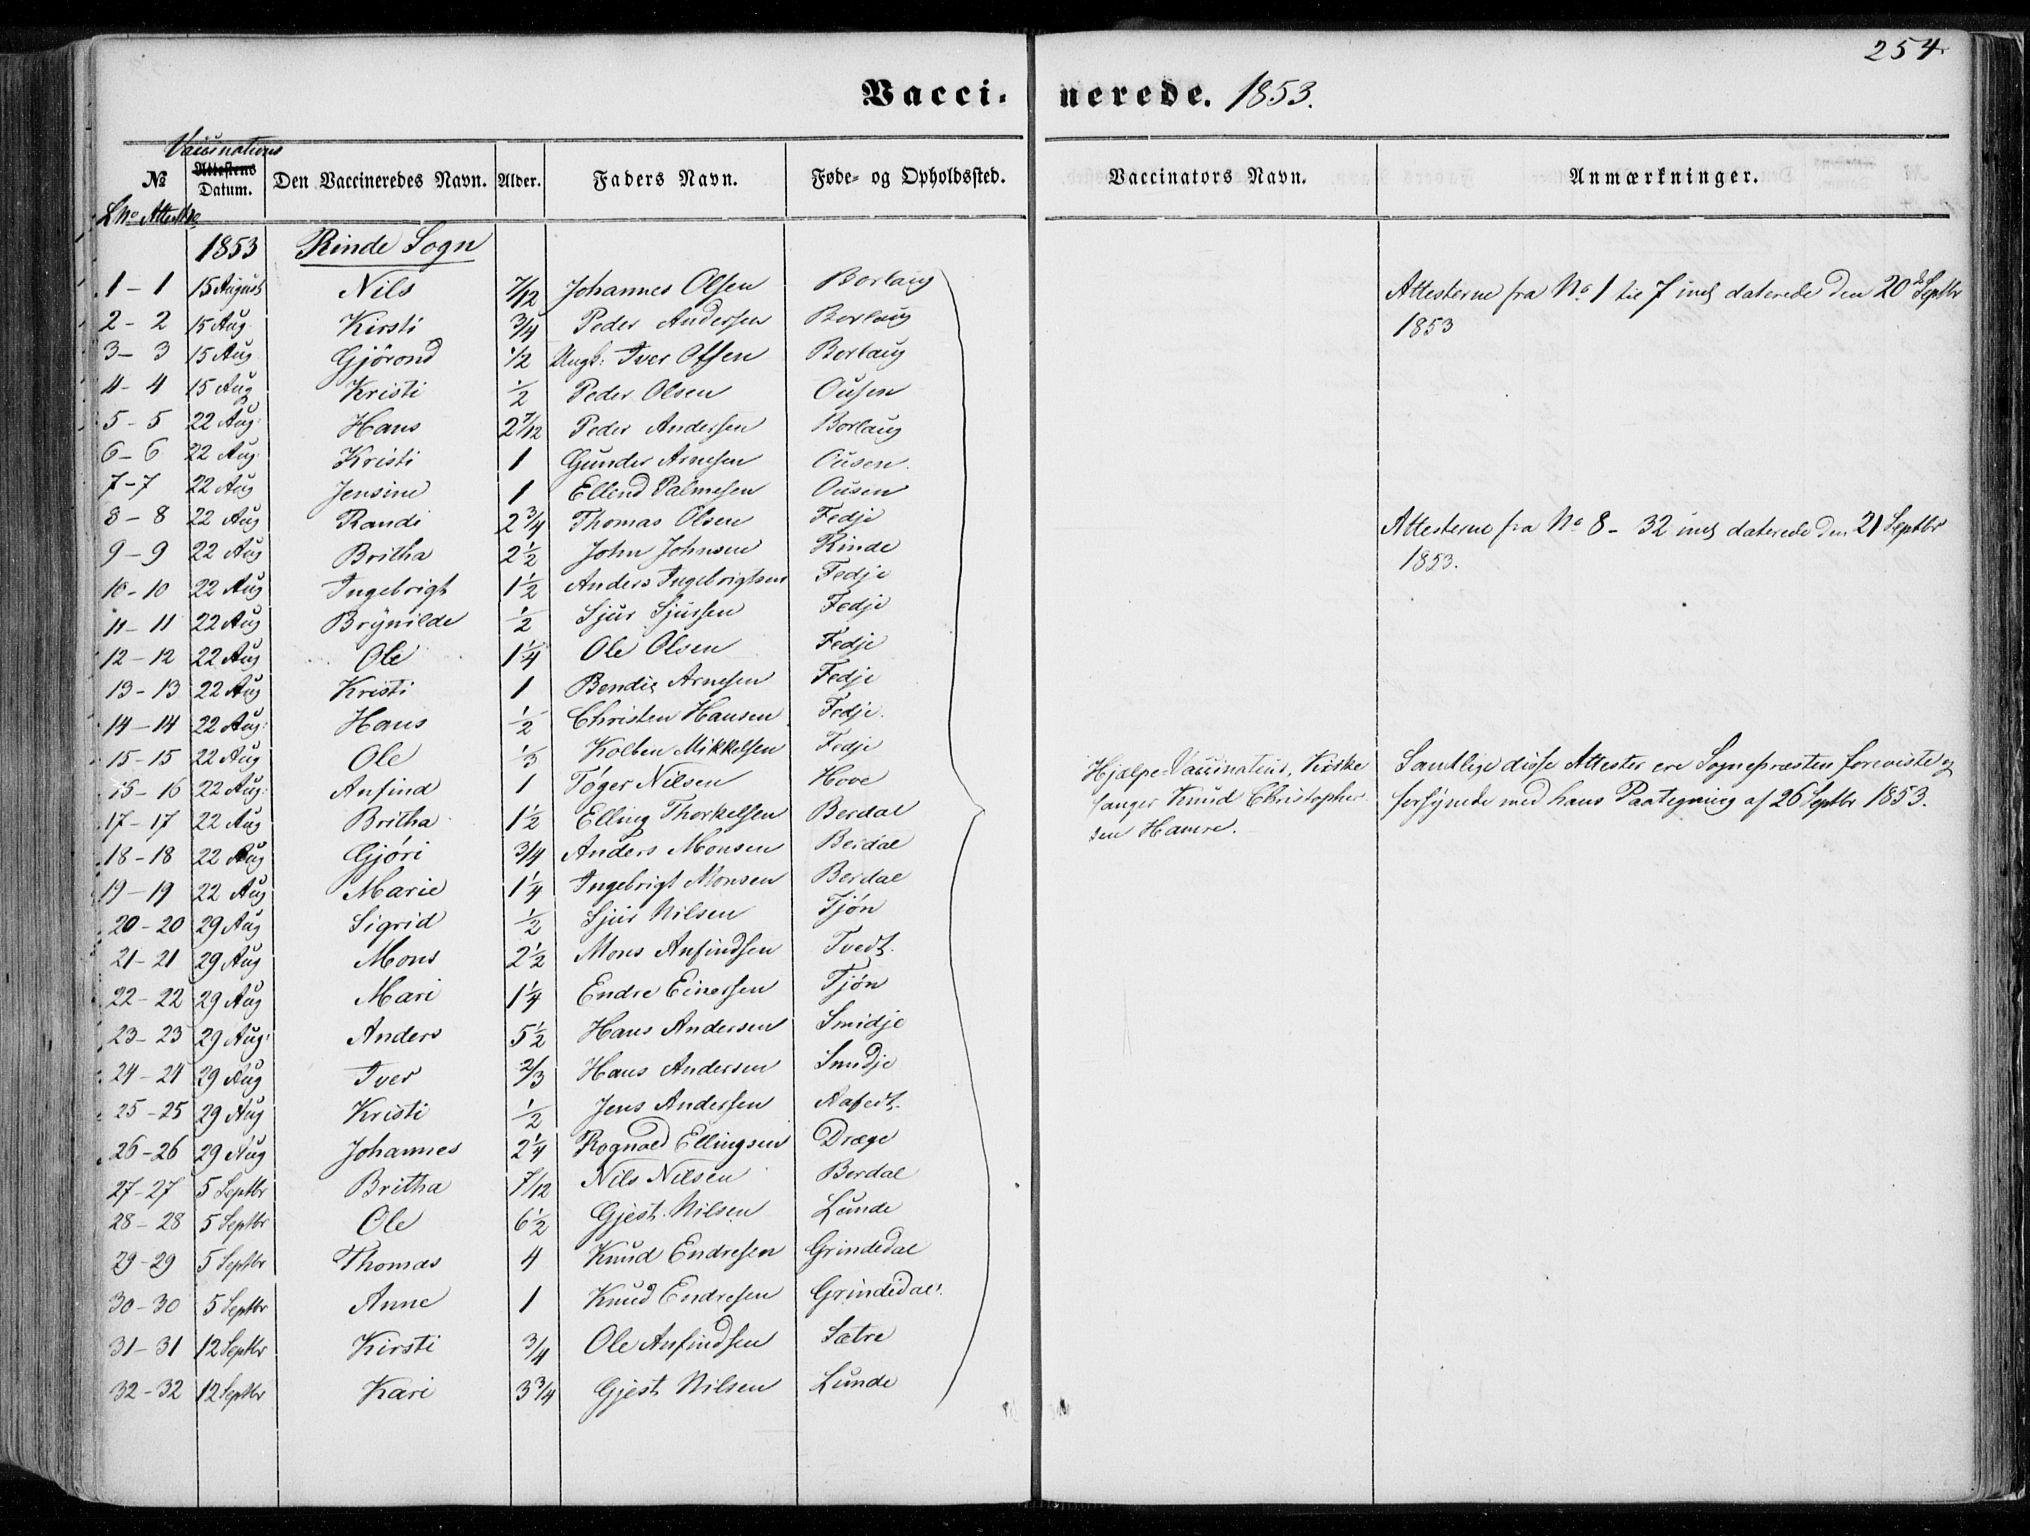 254
Vacci- nerede. 1853.
Vaccinations
№ Attestens Datum. Den Vaccineredes Navn. Alder. Faders Navn. Føde- og Opholdssted. Vaccinators Navn. Anmærkninger.
L No Attest No
1853 Rinde Sogn
1 - 1 15 August Nils 7/12 Johannes Olsen Borlaug
2 - 2 15 Aug. Kirsti 3/4 Peder Andersen Borlaug
3 - 3 15 Aug. Gjörond 1/2 Ungk: Iver Olsen Borlaug
4 - 4 15 Aug Kristi 1/2 Peder Olsen Ousen
5 - 5 22 Aug. Hans 2 7/12 Peder Andersen Borlaug
6 - 6 22 Aug. Kristi 1 Gunder Arnesen Ousen.
7 - 7 22 Aug Jensine 1 Ellend Palmesen Ousen
8 - 8 22 Aug Randi 2 3/4 Thomas Olsen Fedje
9 - 9 22 Aug Britha 2 1/2 John Johnsen Rinde
10 - 10 22 Aug Ingebrigt 1 1/2 Anders Ingebrigtsen Fedje
11 - 11 22 Aug Brynilde 1/2 Sjur Sjursen Fedje
12 - 12 22 Aug Ole 1 1/4 Ole Olsen Fedje
13 - 13 22 Aug Kristi 1 Bendic Arnesen Fedje
14 - 14 22 Aug: Hans 1/2 Christen Hansen Fedje.
15 - 15 22 Aug Ole 1/3 Kolben Mikkelsen Fedje
16 - 16 22 Aug. Anfind 1 Töger Nilsen Hove
17 - 17 22 Aug Britha 1 1/2 Elling Thorkelsen Berdal
18 - 18 22 Aug Gjøri 3/4 Anders Monsen Berdal
19 - 19 22 Aug Marie 1 1/4 Ingebrigt Monsen Berdal
20 - 20 29 Aug Sigrid 1/2 Sjur Nilsen Tjøn
21 - 21 29 Aug Mons 2 1/2 Mons Anfindsen Tvedt.
22 - 22 29 Aug Mari 1 1/4 Endre Einersen Tjøn
23 - 23 29 Aug: Anders 5 1/2 Hans Andersen Smidje
24 - 24 29 Aug Iver 2/3 Hans Andersen Smidje
25 - 25 29 Aug Kristi 1/2 Jens Andersen Aafedt.
26 - 26 29 Aug Johannes 2 1/4 Rognald Ellingsen Dræge
27 - 27 5 Septbr Britha 7/12 Nils Nilsen Berdal
28 - 28 5 Septbr Ole 6 1/2 Gjest Nilsen Lunde
29 - 29 5 Septbr Thomas 4 Knud Endresen Grindedal
30 - 30 5 Septbr Anne 1 Knud Endresen Grindedal.
31 - 31 12 Septbr Kirsti 3/4 Ole Anfindsen Sætre
32 - 32 12 Septbr Kari 3 3/4 Gjest Nilsen Lunde
Hjælpe-Vaccinateur, Kirke
sanger Knud Christopher
sen Hamre.
Attesterne fra No. 1 til 7 incl daterede den 20de Septbr
1853
Attesterne fra No 8 - 32 incl daterede den 21 Septbr
1853.
Samtlige disse Attester ere Sognepræsten foreviste og
forsynede med hans Paategning af 26 Septbr 1853.